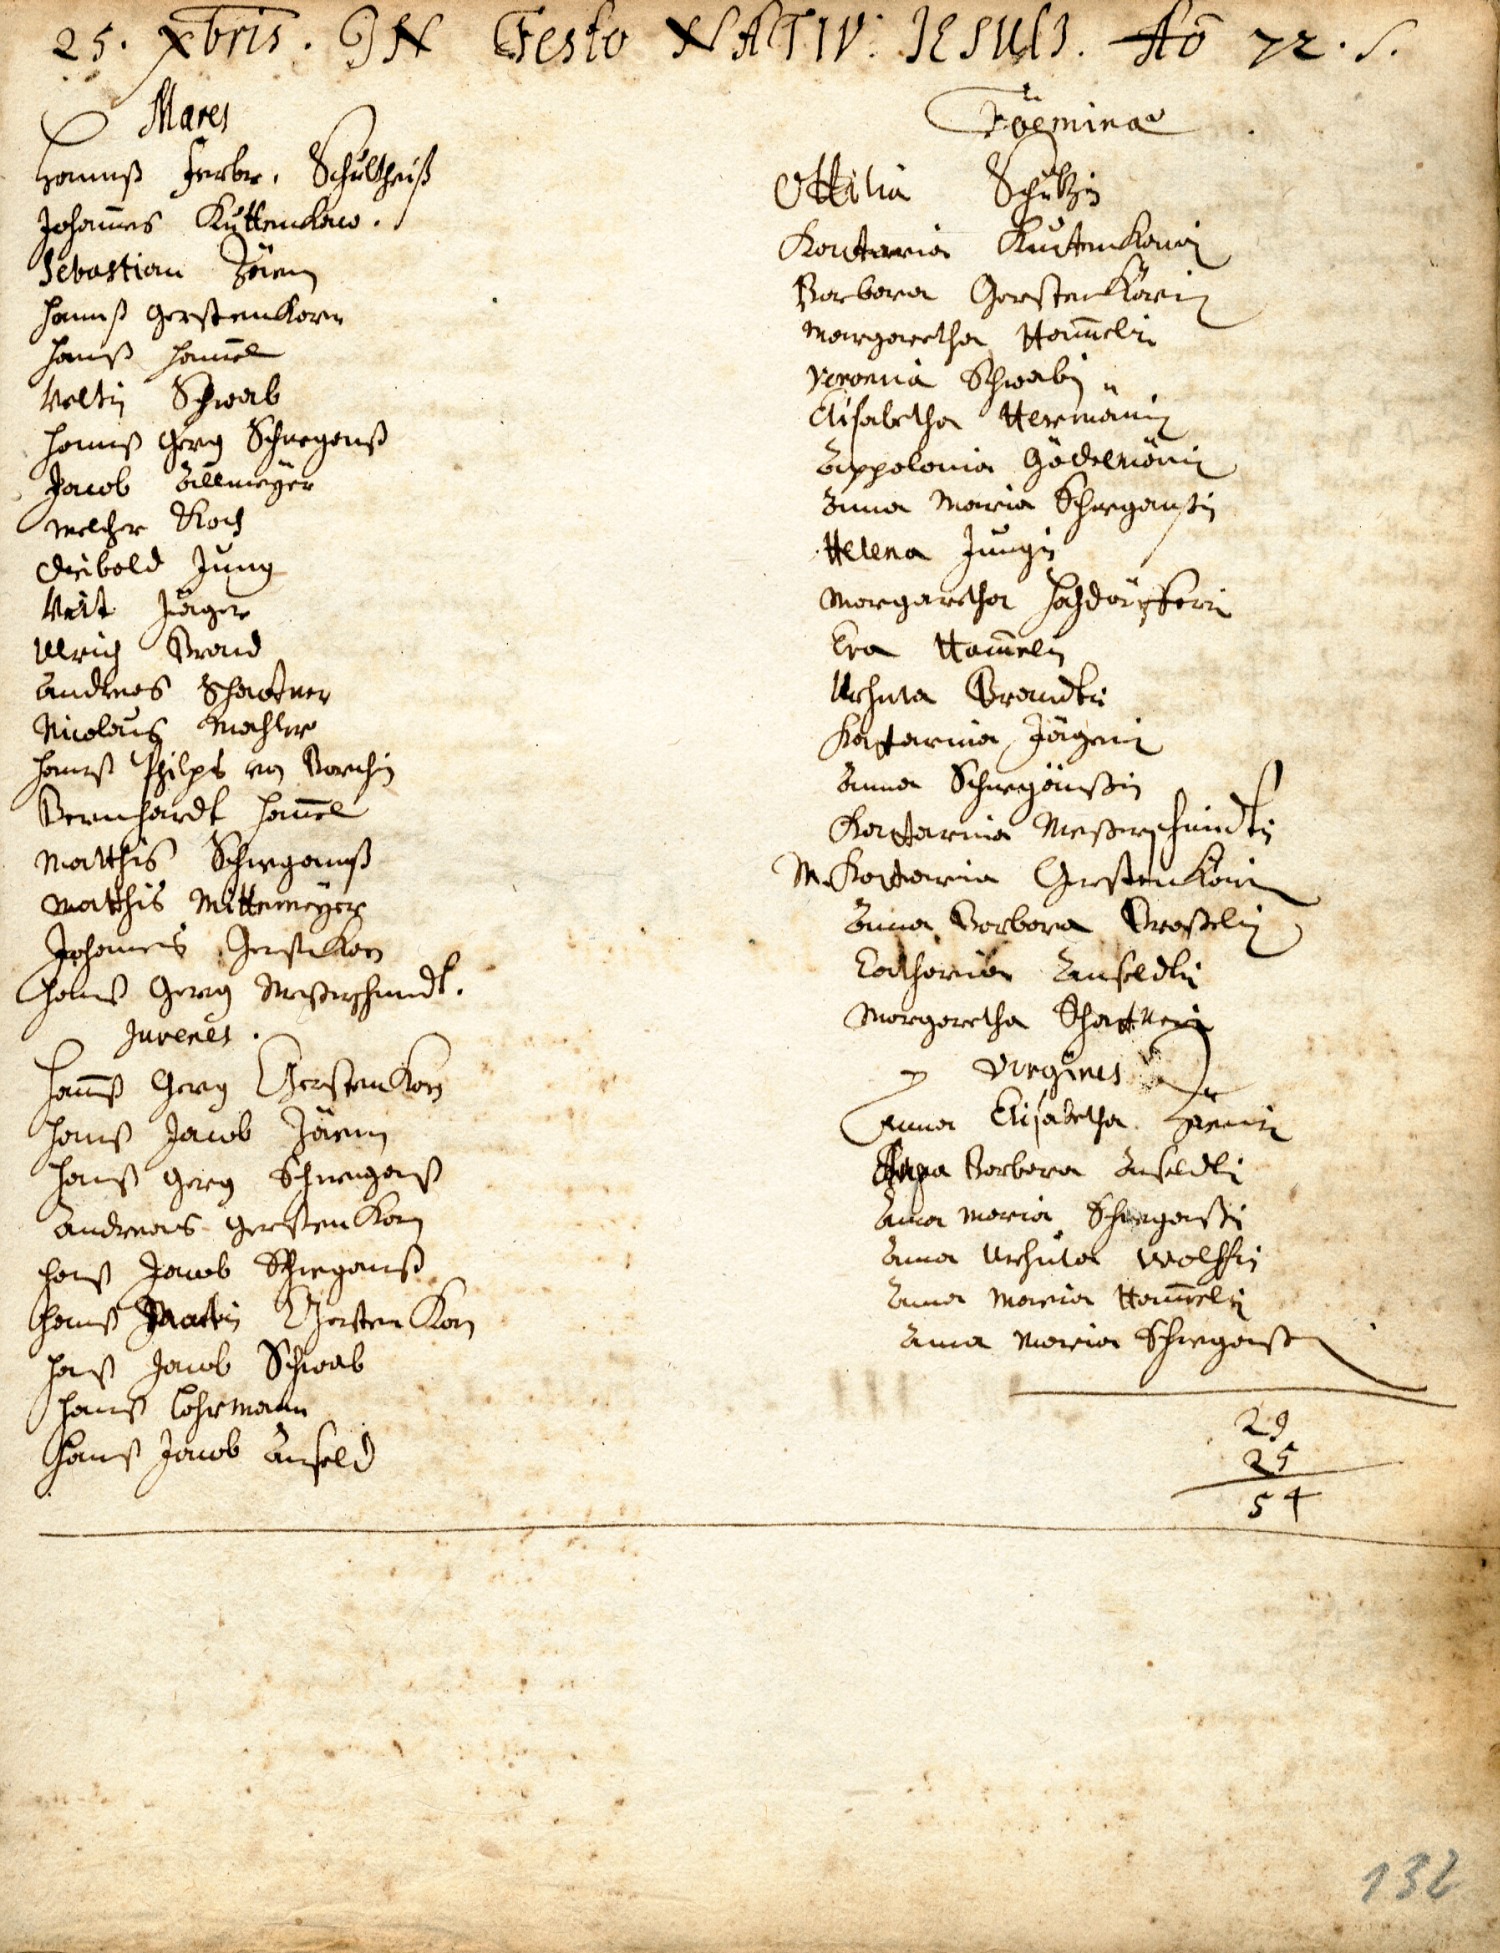 25. Xbris. IN Festo NATIV: JESULJ. Ao 72. S.
Mares
Hannß Ferber. Schultheiß
Johannes Kuttenkaw.
Sebastian
Hannß Gerstenkorn
Hannß Ham̅el
Veltin Schwab
Hannß Gerg Schwegenß
Jacob Allmeÿer
Melcher Koch
Diebold Jung
Veit Jäger
Ulrich Brand
Andreas Schattner
Nicolaus Machler
Hannß Philps von
Bernhardt Ham̅el
Matthis Schwegamß
Matthis Mittemeÿer
Johannes Gerstekorn
Hannß Gerg Meßerschmidt.
Juvenes.
Hannß Gerg Gerstenkorn
Hannß Jacob
Hannß Gerg Schwegenß
Andreas Gerstenkorn
Hannß Jacob Schwegamß
Hannß Martin Gerstenkorn
Hannß Jacob Schwab
Hannß Lohrmann
Hannß Jacob Anseld
Föeminae
Ottilia Schultzin
Kattarina Kuttenkawin
Barbara Gerstenkörin
Margaretha Ham̅elin
Veronia Schwabin
Elisabetha Hermänin
Appolonia Gödelmänin
Anna Maria Schwegamßin
Helena Jungin
Margaretha Hochdörfferin
Eva Ham̅elin
Urhula Brandtin
Kattarina Jägerin
Anna Schwegämßin
Kattarina Meßerschmidtin
M. Kattarina Gerstenkörin
Anna Barbara Braßelin
Catharina Anseldtin
Margaretha Schattnerin
Virgines
Anna Elisabetha
Anna Barbara Anseldtin
Anna Maria Schwegamßin
Anna Urhula Wolffin
Anna Maria Ham̅elin
Anna Maria Schwegamß
29
25
54
132